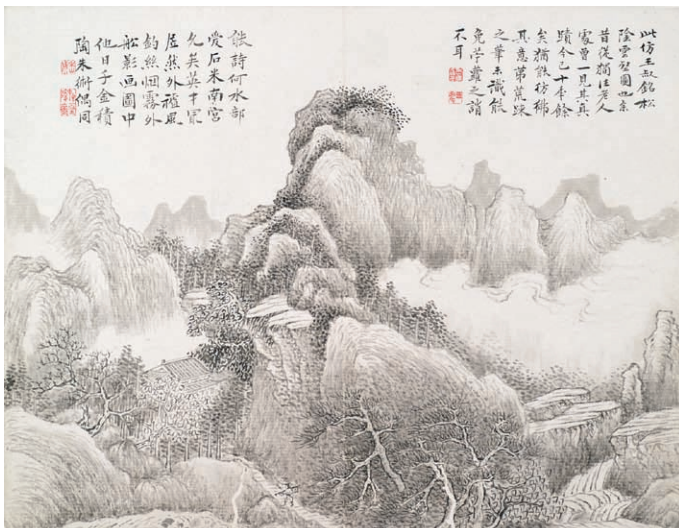 此仿王叔銘松
陰雲壑圖也余
昔從獨往老人
家曾一見其真
蹟今已十年餘
矣猶能彷彿
其意第荒疎
之筆未識能
免之誚
不耳
談詩何水部
愛石米南宮
矣英
居然外祖風
釣絲烟霧外
船影画圖中
他日千金積
陶朱術偶同